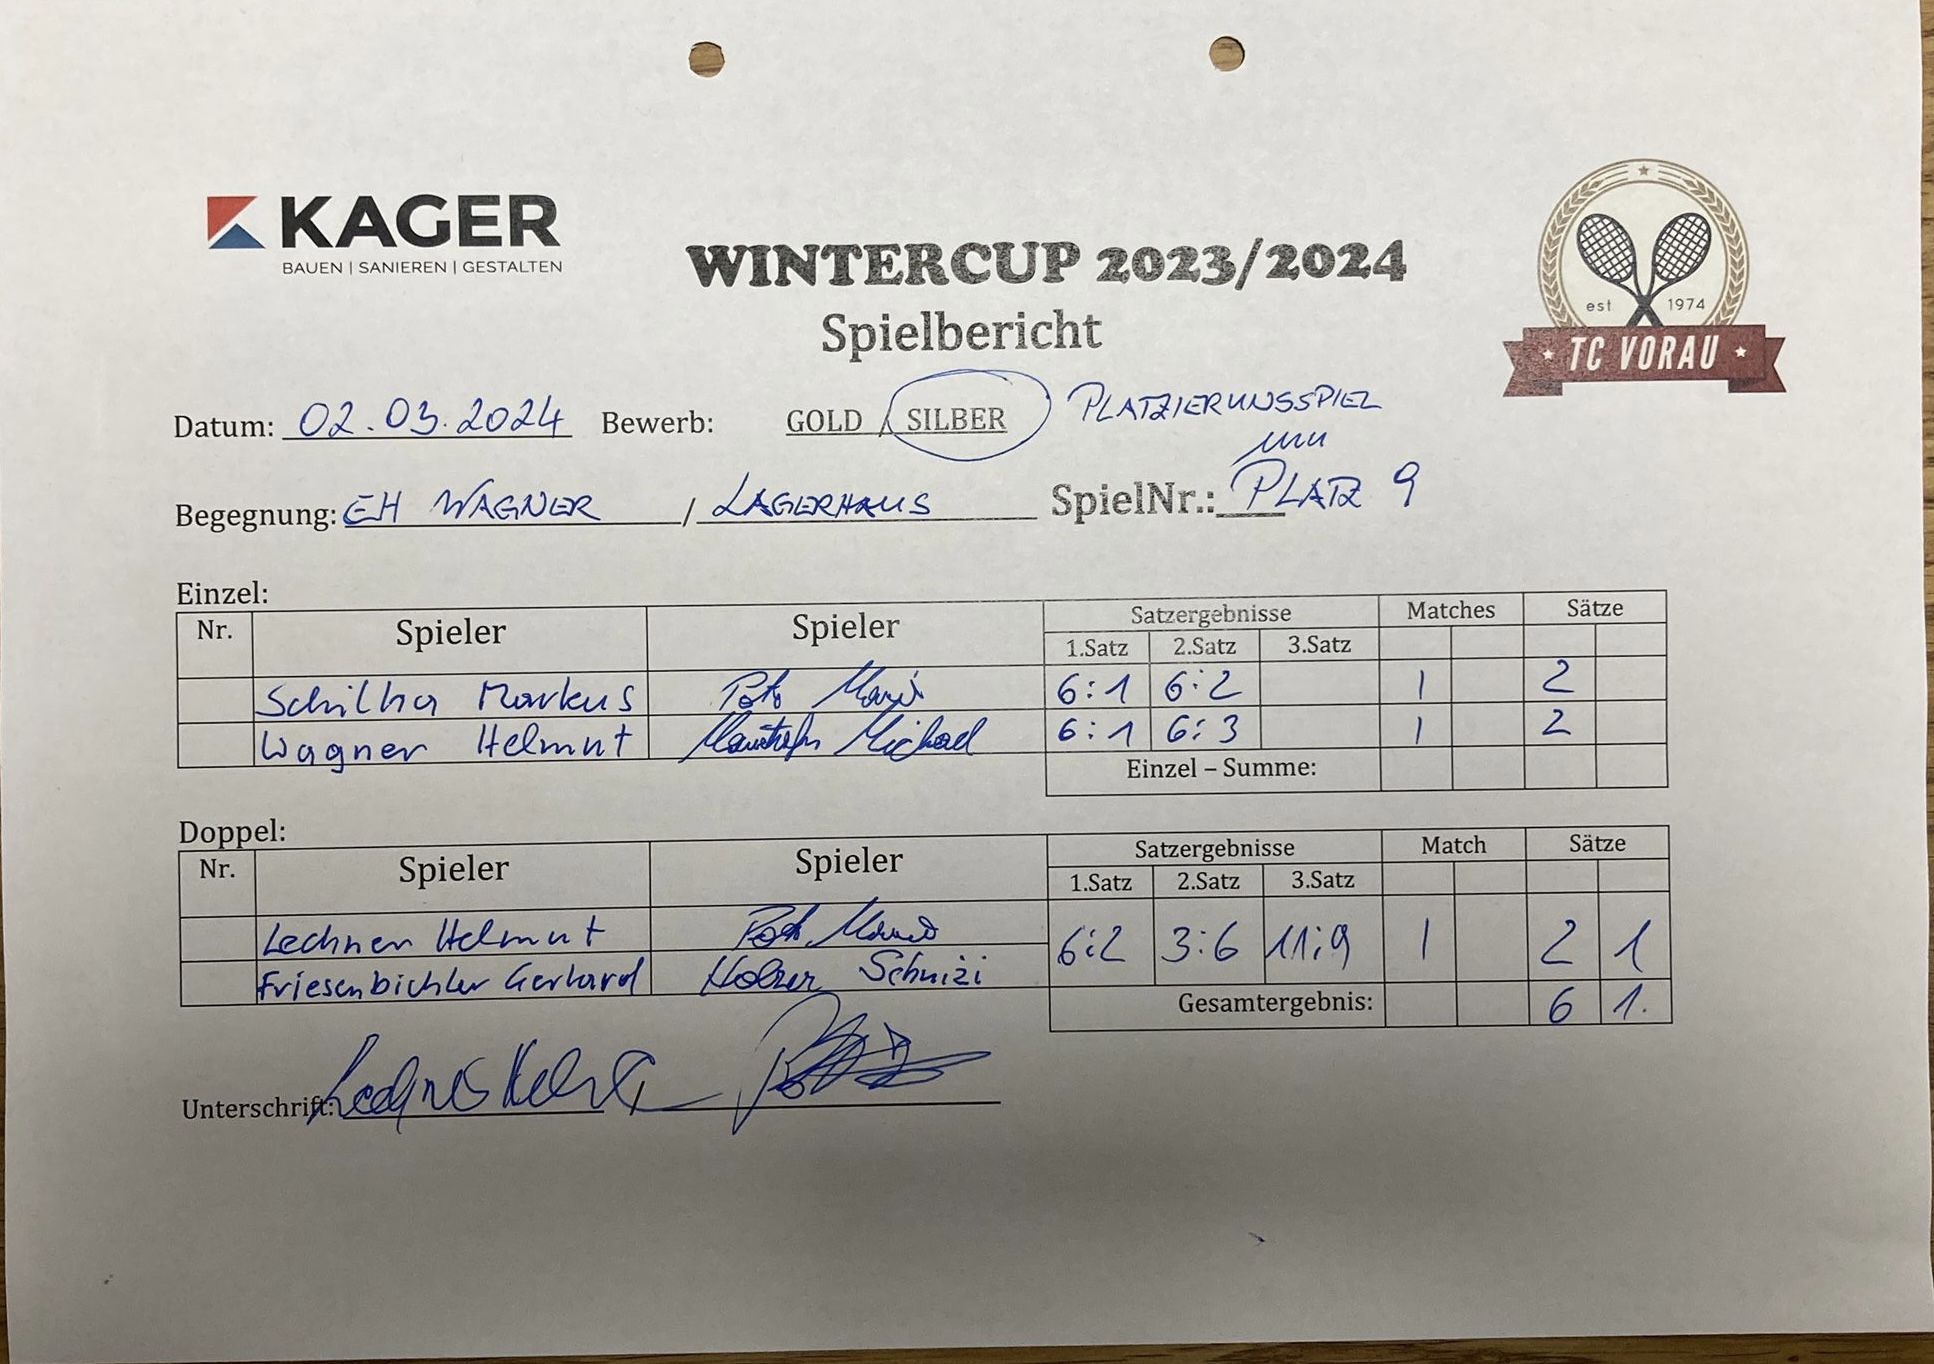 KAGER
BAUEN | SANIEREN | GESTALTEN
WINTERCUP 2023/2024
Spielbericht
est 1974
TC VORAU
Datum: 02.03.2024 Bewerb: GOLD / SILBER PLATZIERUNGSSPIEL
um
Begegnung: EH WAGNER / LAGERHAUS SpielNr.: PLATZ 9
Einzel:
Nr. Spieler Spieler Satzergebnisse Matches Sätze
1.Satz 2.Satz 3.Satz
Schilha Markus 6:1 6:2 1 2
Wagner Helmut Michael 6:1 6:3 1 2
Einzel – Summe:
Doppel:
Nr. Spieler Spieler Satzergebnisse Match Sätze
1.Satz 2.Satz 3.Satz
Lechner Helmut 6:2 3:6 11:9 1 2 1
Friesenbichler Gerhard Holzer
Gesamtergebnis: 6 1.
Unterschrift: